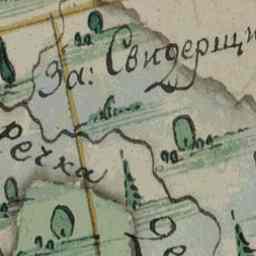 За: Свидерщи
Речка